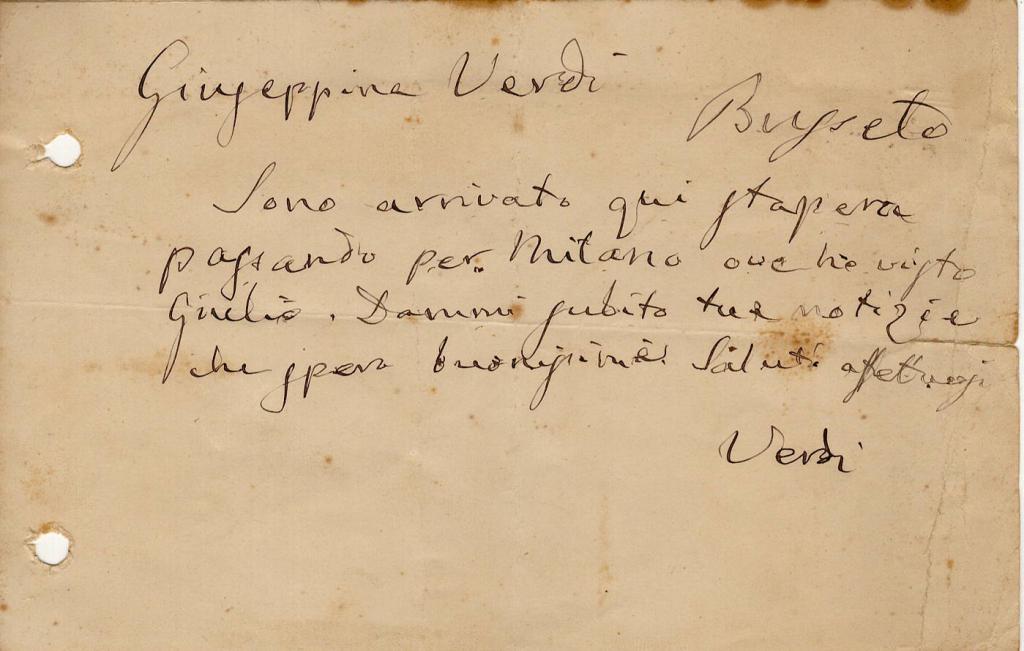 Giuseppina Verdi
Busseto
Sono arrivato qui stasera
passando per Milano ove ho visto
Giulio. Dammi subito tue notizie
che spero buonissime. Saluti affettuosi
Verdi